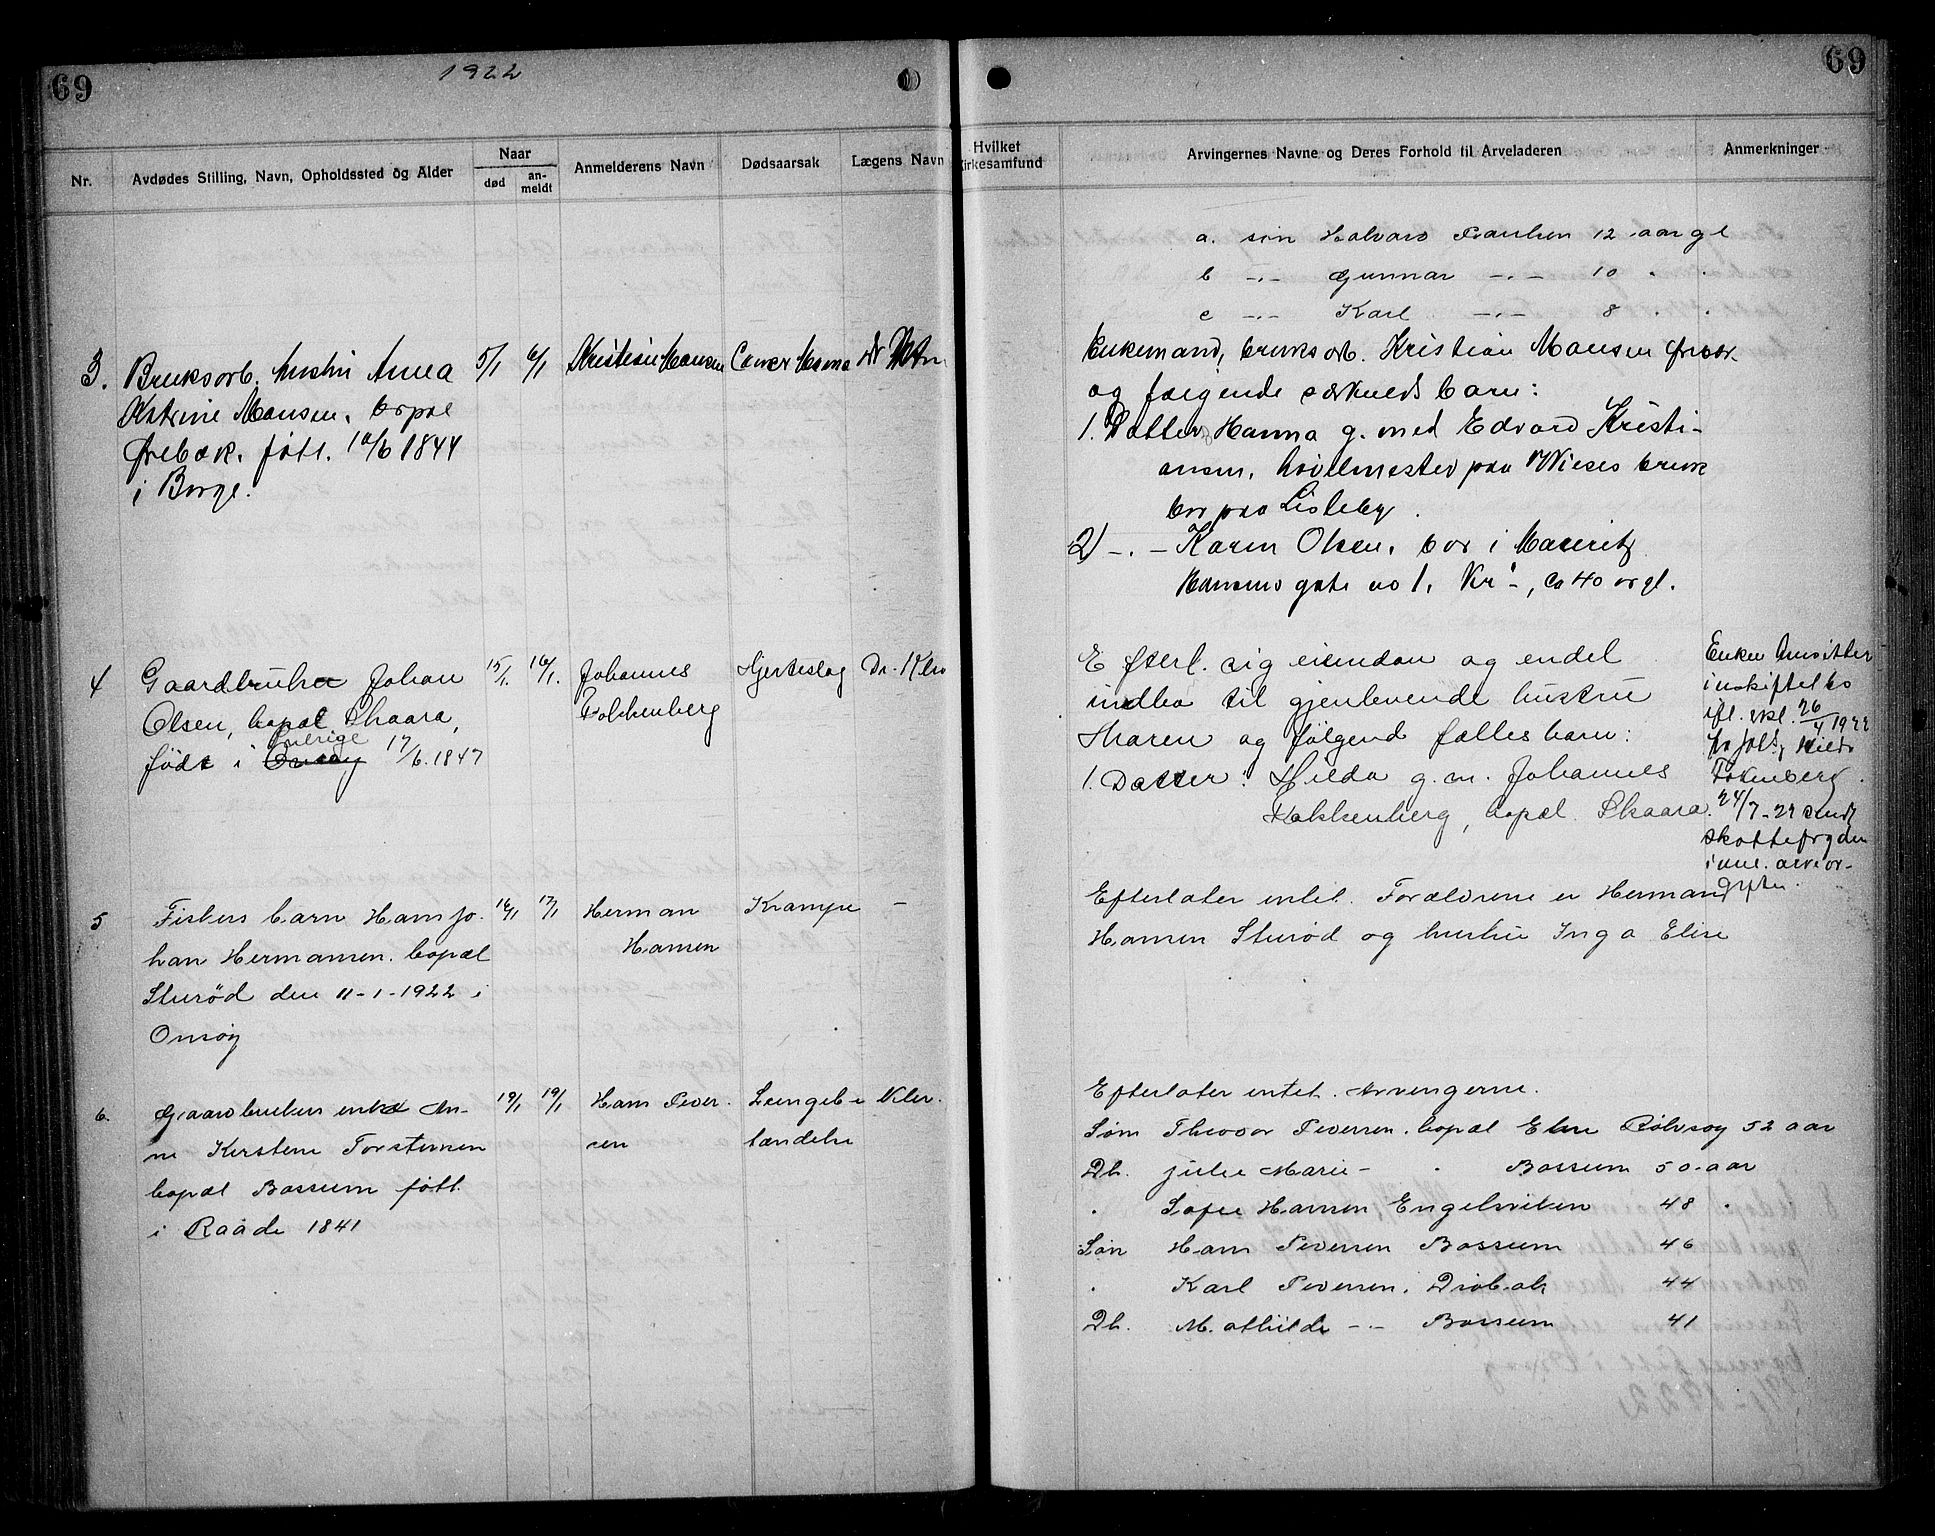 69
1922
69
Nr.
Avdødes Stilling, Navn, Opholdssted og Alder
Naar
død
an-
meldt
Anmelderens Navn
Dødsaarsak
Lægens Navn
Hvilket
irkesamfund
Arvingernes Navne og Deres Forhold til Arveladeren
Anmerkninger
a. søn Halvard Paulsen 12 aar gl
b -.- Gunnar -.- 10 . .
c -.- Karl -.- 8 . .
3. Bruksarb. hustru Anna
Katrine Hansen. bopæl
Ørebæk. født. 10/6 1844
i Borge.
5/1
6/1
Kristian Hansen
Cancer
dr
Enkemand, bruksarb. Kristian Hansen
og følgende særkuldsbarn:
1. Datter Hanna g. med Edvard Kristi-
ansen, hvilmester paa Wieses bruk
bor paa Lisleby.
2) -.- Karen Olsen, bor i Mauritz
Hansens gate no 1. Kr-a, ca 40 aar gl.
4
Gaardbruker Johan
Olsen, bopæl Skaara,
født i Onsøy Sverige 17/6.1847
15/1.
16/1.
Johannes
Folkenberg
Hjerteslag
Dr. Kler
Efterl. sig eiendom og endel
indbo til gjenlevende hustru
Maren og følgend fællesbarn:
1. Datter: Hilda g.m. Johannes
Folkenberg, bopæl Skaara.
Enken hensitter
i uskiftet bo
ifl. erkl. 26/4 1922
Fokenberg.
24/7-22 sendt
skattefogden
i anl. arveav-
giften.
5
Fiskers barn Hans Jo-
han Hermansen. bopæl
Sturød den 11-1-1922 i
Onsøy
16/1
17/1
Herman
Hansen
Krampe
-
Efterlater intet. Forældrene er Herman
Hansen Sturød og hustru Inga Elise
6.
Gaardbrukers enke An-
ne Kirstene Torstensen
bopæl Bossum født
i Raade 1841
19/1
19/1
Hans Peder-
sen
Lungebe-
tændelse
Kler.
Efterlater intet. Arvingerne.
Søn Theodor Pedersen. bopæl Elne Rolvsøy 52 aar
Dt. Julie Marie - . Bossum 50 aar
. Sofie Hansen Engelsviken 48 .
Søn Hans Pedersen Bossum 46
. Karl Pedersen. Drøbak 44
Dt. Mathilde -.- Bossum 41